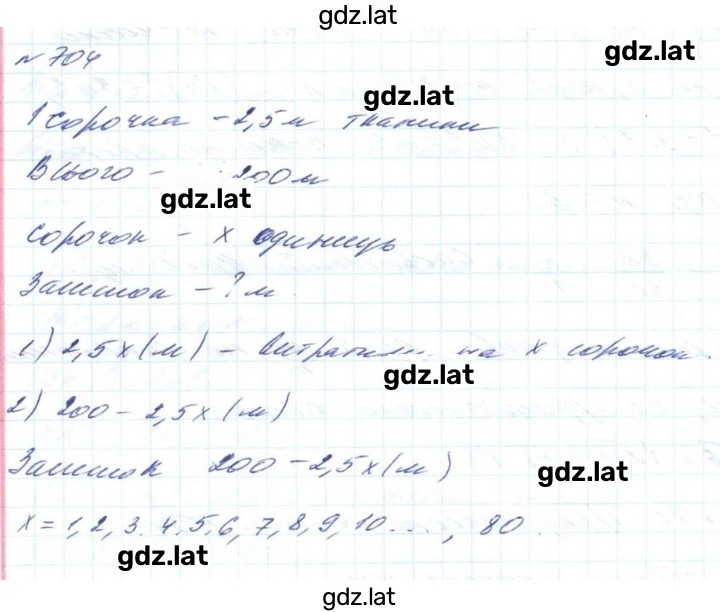 gdz.lat
№ 704
gdz.lat
gdz.lat
1 сорочка - 2,5 м тканини
Всього - 200 м
gdz.lat
Сорочок - х одиниць
Залишок - ? м.
1) 2,5х (м) - витратили на х сорочок.
gdz.lat
2) 200 - 2,5х (м)
Залишок 200 - 2,5х (м)
gdz.lat
х = 1, 2, 3, 4, 5, 6, 7, 8, 9, 10 ..., 80.
gdz.lat
gdz.lat